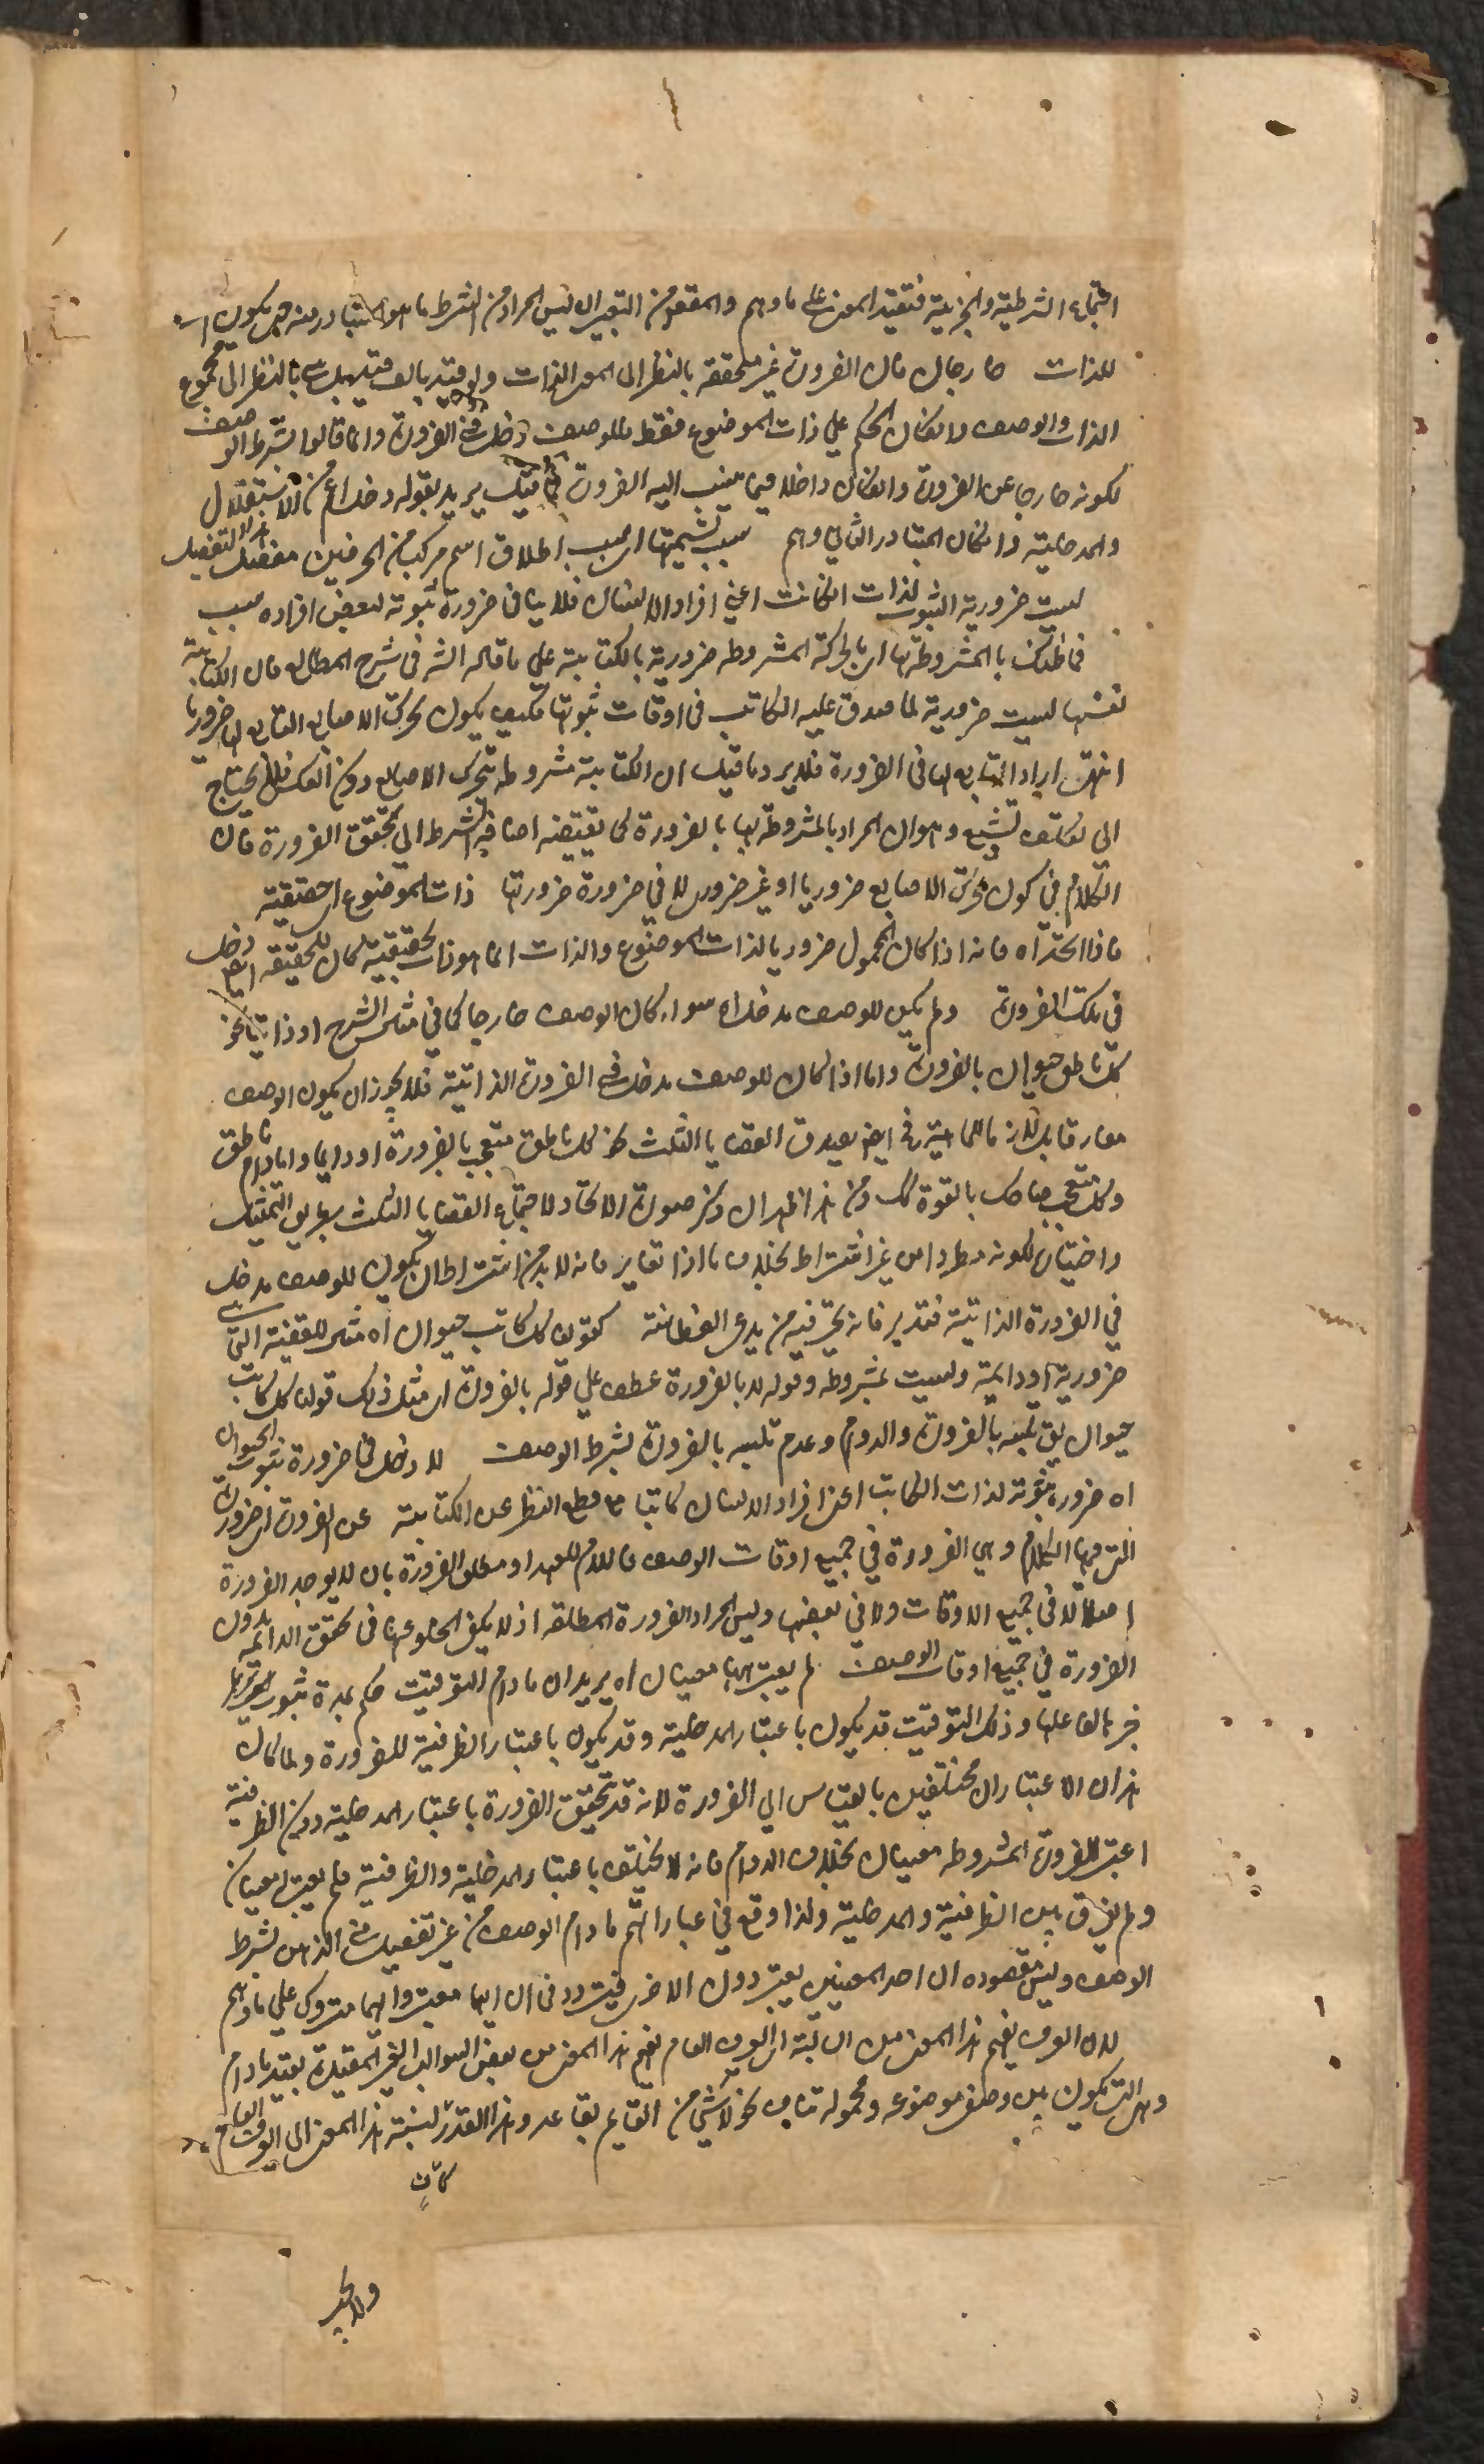 اجتماع الشرطية والجزئية فتقييد المعنى على ما وهم والمقصود من التعبير ان ليس المراد من الشرط ما هو المتبادر منه حتى يكون
للذات خارجا فان الضرورة غير متحققة بالنظر الى الذات بل بالنظر الى مجموع
الذات والوصف لامكان الحكم على ذات الموضوع فقط فللوصف دخل في الضرورة وانما قالوا بشرط الوصف
لكونه خارجا عن الضرورة وان كان داخلا فيما ينسب اليه الضرورة يريد بقوله دخل اعم من الاستقلال
والمدخلية وان كان المتبادر الثاني وهم سبب تسميتها اي سبب اطلاق اسم مركب من الحرفين
ليست ضرورية الثبوت لذات الكاتب اعني افراد الانسان فلا ينافي ضرورة ثبوته لبعض افراده بسبب
فما ظنك بالمشروطة بها اي بالحركة المشروطة ضرورية بالكتابة على ما قاله الشر في شرح المطالع فان الكتابة
نفسها ليست ضرورية لما صدق عليه الكاتب في اوقات ثبوتها فكيف يكون تحرك الاصابع التابع لها ضروريا
انتهى اراد التابع لها في الضرورة فلا يرد ما قيل ان الكتابة مشروطة بتحرك الاصابع دون العكس فلا يحتاج
الى تكلف وهو ان المراد بالمشروطة بها بالضرورة كما يقتضيه اضافة الشرط الى تحقق الضرورة فان
الكلام في كون تحرك الاصابع ضروريا او غير ضروري لا في ضرورة ضرورتها ذات الموضوع اي حقيقته
فاذا اتحدا اه فانه اذا كان المحمول ضروريا لذات الموضوع والذات انما هو ذات بحقيقته كان للحقيقة ايضا دخل
في تلك الضرورة ولم يكن للوصف مدخل اه سواء كان الوصف خارجا كما في مثال الشرح او ذاتيا نحو
كل ناطق حيوان بالضرورة واما اذا كان للوصف مدخل في الضرورة الذاتية فلا يجوز ان يكون الوصف
مفارقا بل لازما للماهية ايضا يصدق القضايا الثلث نحو كل ناطق متعجب بالضرورة او دائما او ما دام ناطق
وكل متعجب ضاحك بالقوة كك ومن هذا ظهر ان ذكر صورة الاتحاد لاجتماع القضايا الثلث بطريق التمثيل
واختياره لكونه مطردا من غير اشتراط بخلاف ما اذا تغاير فانه لا بد من اشتراط ان يكون للوصف مدخل
في الضرورة الذاتية فتدبر فانه تحير فيه من يدعي الفطانة كقولنا كل كاتب حيوان اه مثال للقضية التي
ضرورية او دائمة وليست بمشروطة وقوله لا بالضرورة عطف على قوله بالضرورة اي مثل ذلك قولنا كل كاتب
حيوان بالضرورة والدوام وعدم تلبسه بالضرورة بشرط الوصف لا دخل في ضرورة ثبوت الحيوان
اه ضرورية ثبوته لذات الكاتب اعني افراد الانسان كاتبا مع قطع النظر عن الكتابة عن الضرورة اي ضرورة
التي فيها الكلام وهي الضرورة في جميع اوقات الوصف فاللام للعهد او مطلق الضرورة بان لا يوجد الضرورة
اصلا لا في جميع الاوقات ولا في بعضها وليس المراد الضرورة المطلقة اذ لا يكفي الخلو عنها في تحقق الدائمة بدون
الضرورة في جميع اوقات الوصف لم يعتبر ههنا معنيان اه يريد ان ما دام للتوقيت حكم بمدة ثبوت
خبرها لفاعلها وذلك التوقيت قد يكون باعتبار المدخلية وقد يكون باعتبار الظرفية للضرورة ولما كان
هذان الاعتباران مختلفين بالقياس الى الضرورة لانه قد تحقق الضرورة باعتبار المدخلية دون الظرفية
اعتبر للضرورة المشروطة معنيان بخلاف الدوام فانه لا يختلف باعتبار المدخلية والظرفية فلم يعتبر معنيان
ولم يفرق بين الظرفية والمدخلية ولذا وقع في عباراتهم ما دام الوصف من غير تفصيل بشرط
الوصف وليس مقصوده ان احد المعنيين يعتبر دون الاخر فيتردد في ان ايهما معتبر وايهما متروك على ما وهم
لان العرف يفهم هذا المعنى من السالبة اي العرف العام يفهم هذا المعنى من بعض السوالب الغير المقيدة بقيد ما دام
وهي التي يكون بين وصف موضوعه ومحموله تناف نحو لا شيء من القائم بقاعد وهذا القدر لنسبة هذا المعنى الى العرف العام
كاف
ولا يجب